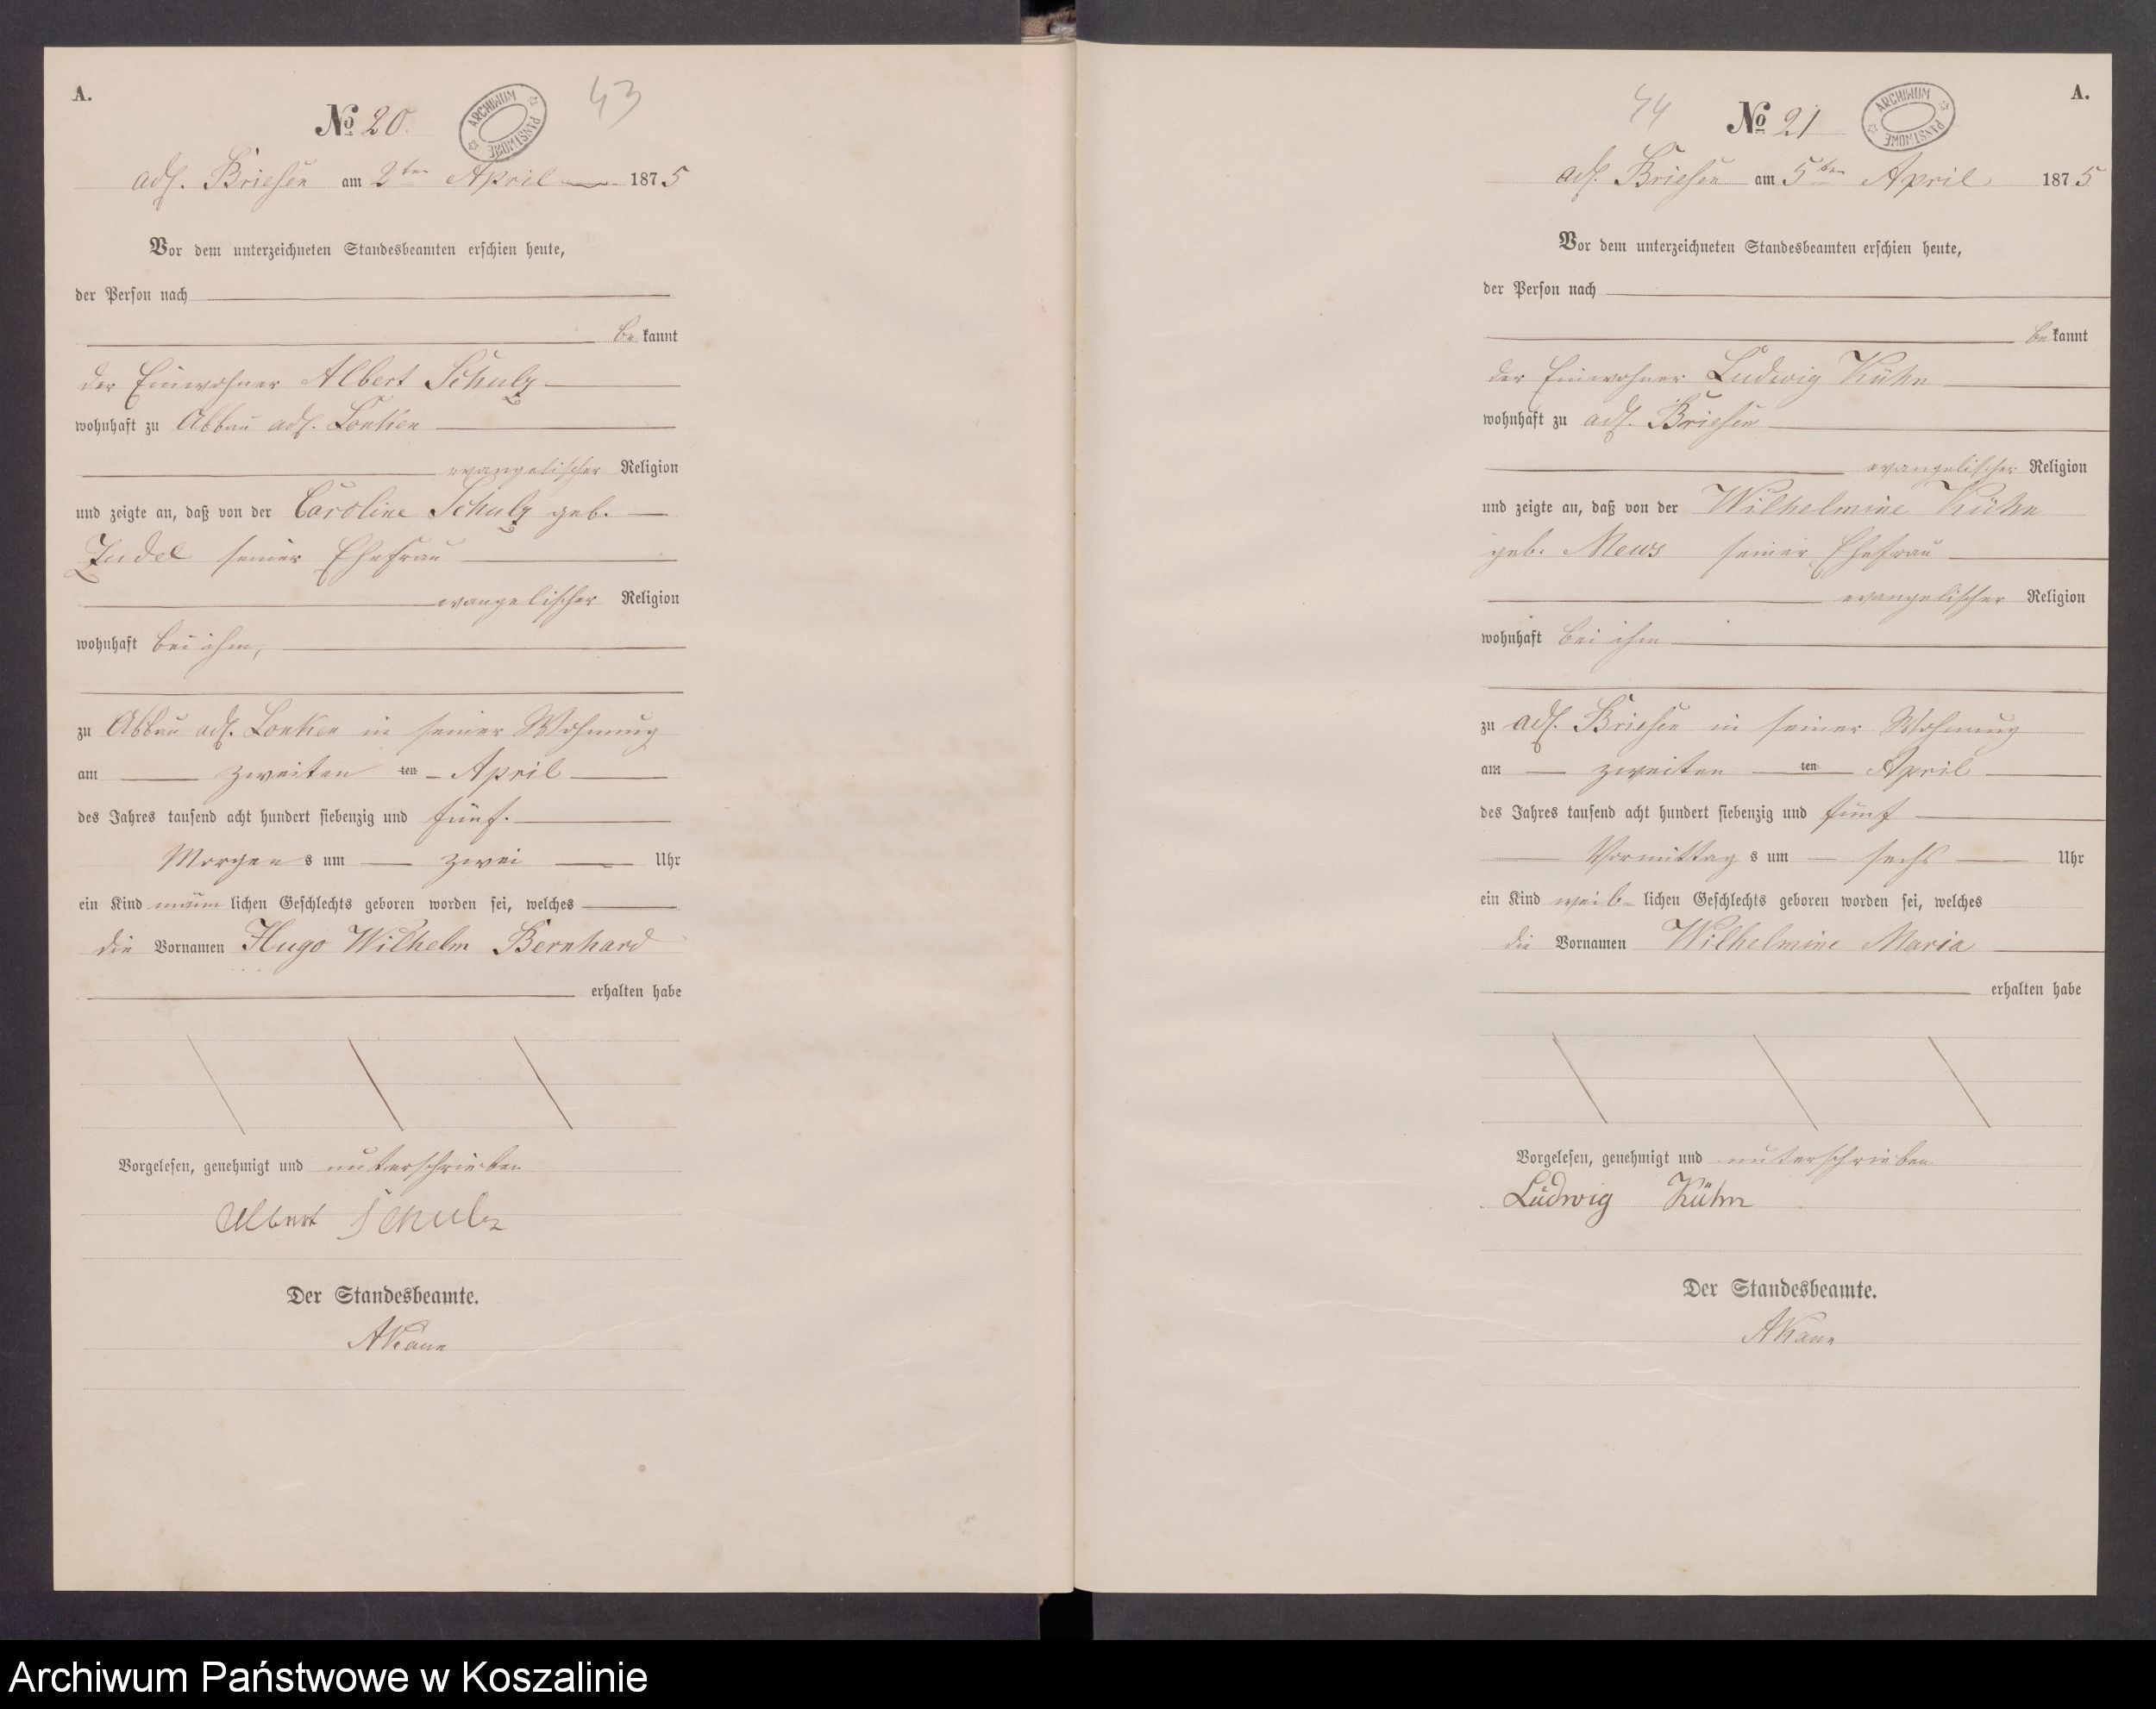 A.
№ 20.
ARCHIWUM PAŃSTWOWE
43
adl. Briesen am 2ten April 1875
Vor dem unterzeichneten Standesbeamten erschien heute,
der Person nach
bekannt
der Einwohner Albert Schulz
wohnhaft zu Abbau adl. Lonken
evangelischer Religion
und zeigte an, daß von der Caroline Schulz geb.
Zudel seiner Ehefrau
evangelischer Religion
wohnhaft bei ihm,
zu Abbau adl. Lonken in seiner Wohnung
am zweiten ten April
des Jahres tausend acht hundert siebenzig und fünf.
Morgens um zwei Uhr
ein Kind männlichen Geschlechts geboren worden sei, welches
die Vornamen Hugo Wilhelm Bernhard
erhalten habe
Vorgelesen, genehmigt und unterschrieben
Albert Schulz
Der Standesbeamte.
44
№ 21
ARCHIWUM PAŃSTWOWE
A.
adl. Briesen am 5ten April 1875
Vor dem unterzeichneten Standesbeamten erschien heute,
der Person nach
bekannt
der Einwohner Ludwig Kühn
wohnhaft zu adl. Briesen
evangelischer Religion
und zeigte an, daß von der Wilhelmine Kühn
geb. Mews seiner Ehefrau
evangelischer Religion
wohnhaft bei ihm
zu adl. Briesen in seiner Wohnung
am zweiten ten April
des Jahres tausend acht hundert siebenzig und fünf
Vormittags um sechs Uhr
ein Kind weiblichen Geschlechts geboren worden sei, welches
die Vornamen Wilhelmine Maria
erhalten habe
Vorgelesen, genehmigt und unterschrieben
Ludwig Kühn
Der Standesbeamte.
Archiwum Państwowe w Koszalinie